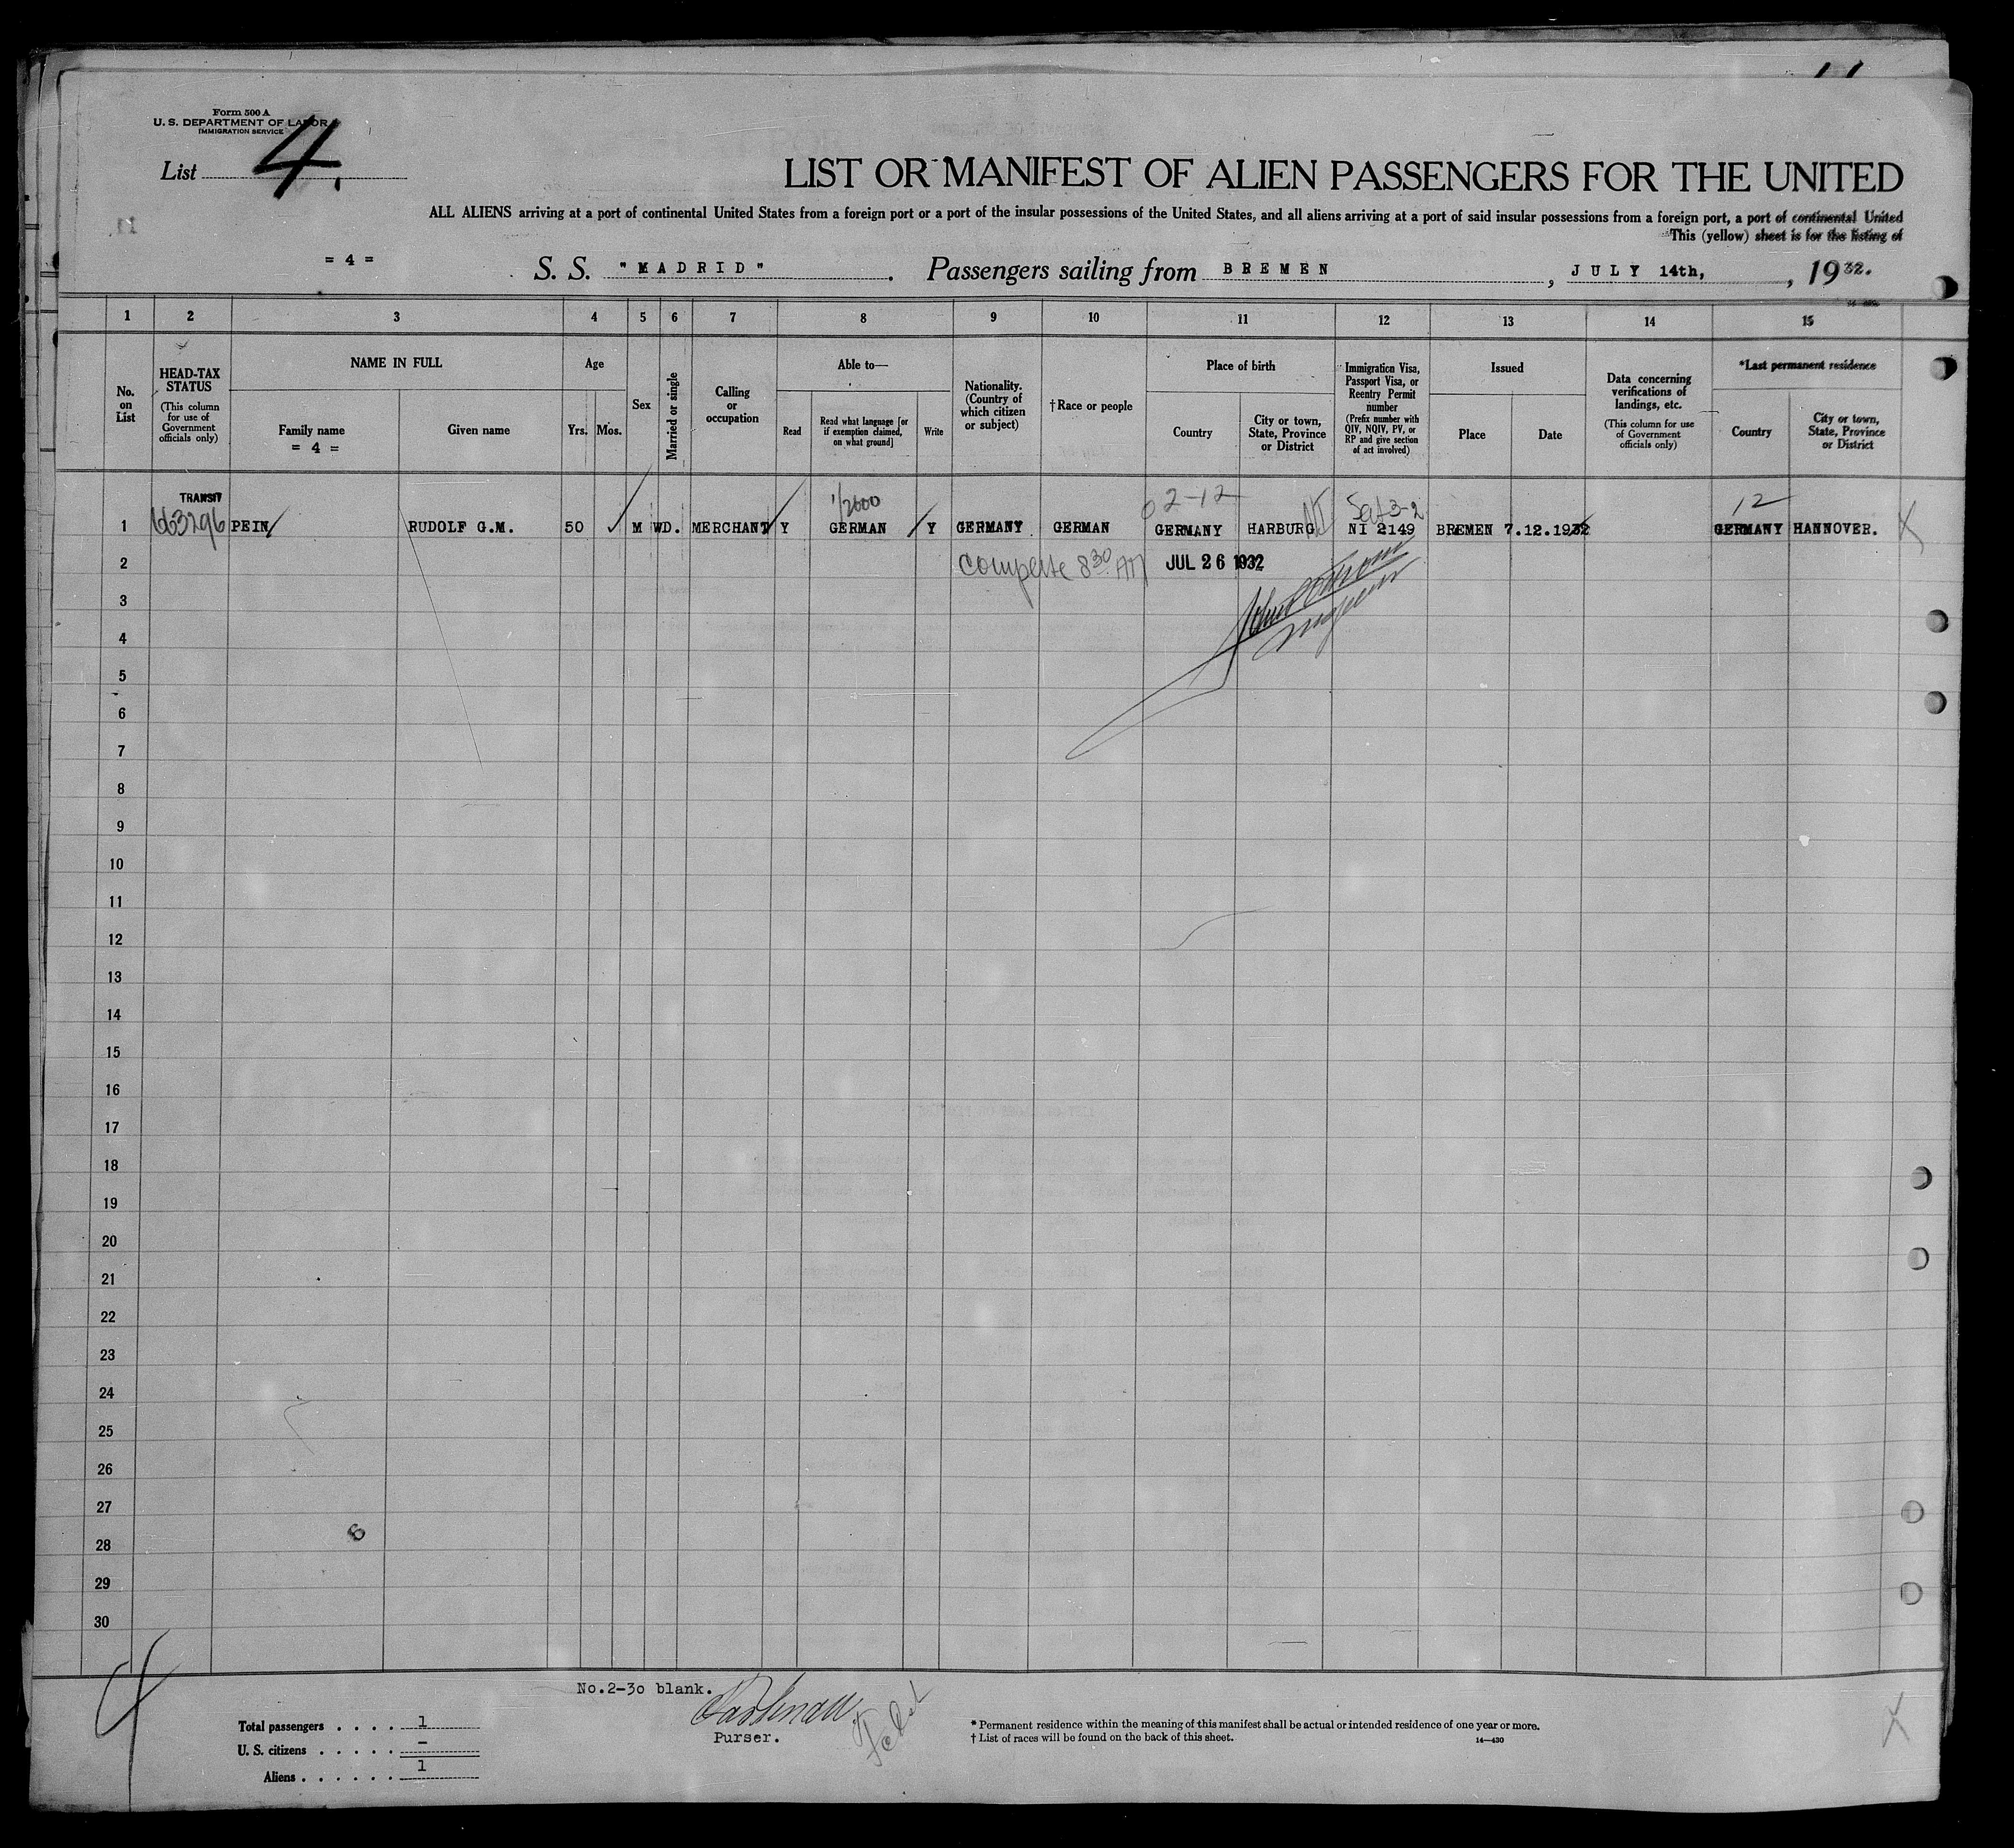 Form 500 A
U. S. DEPARTMENT OF LABOR
IMMIGRATION SERVICE
List 4.
LIST OR MANIFEST OF ALIEN PASSENGERS FOR THE UNITED
ALL ALIENS arriving at a port of continental United States from a foreign port or a port of the insular possessions of the United States, and all aliens arriving at a port of said insular possessions from a foreign port, a port of continental United
This (yellow) sheet is for the listing of
= 4 = S. S. "MADRID" . Passengers sailing from BREMEN , JULY 14th, , 1932.
1 2 3 4 5 6 7 8 9 10 11 12 13 14 15
No. on List
HEAD-TAX STATUS (This column for use of Government officials only)
NAME IN FULL
Family name
= 4 =
Given name
Age
Yrs. Mos.
Sex
Married or single
Calling or occupation
Able to—
Read
Read what language [or if exemption claimed, on what ground]
Write
Nationality. (Country of which citizen or subject)
†Race or people
Place of birth
Country
City or town, State, Province or District
Immigration Visa, Passport Visa, or Reentry Permit number (Prefix number with QIV, NQIV, PV, or RP and give section of act involved)
Issued
Place
Date
Data concerning verifications of landings, etc. (This column for use of Government officials only)
*Last permanent residence
Country
City or town, State, Province or District
TRANSIT 1/2000 02-12 Sect 3-2 12
1 663296 PEIN RUDOLF G.M. 50 M WD. MERCHANT Y GERMAN Y GERMANY GERMAN GERMANY HARBURG NI 2149 BREMEN 7.12.1932 GERMANY HANNOVER. X
2 JUL 26 1932
3
4
5
6
7
8
9
10
11
12
13
14
15
16
17
18
19
20
21
22
23
24
25
26
27
28
29
30
No.2-30 blank.
Total passengers . . . . 1
U. S. citizens . . . . . –
Aliens . . . . . . 1
Purser.
* Permanent residence within the meaning of this manifest shall be actual or intended residence of one year or more.
† List of races will be found on the back of this sheet.
14—430
X